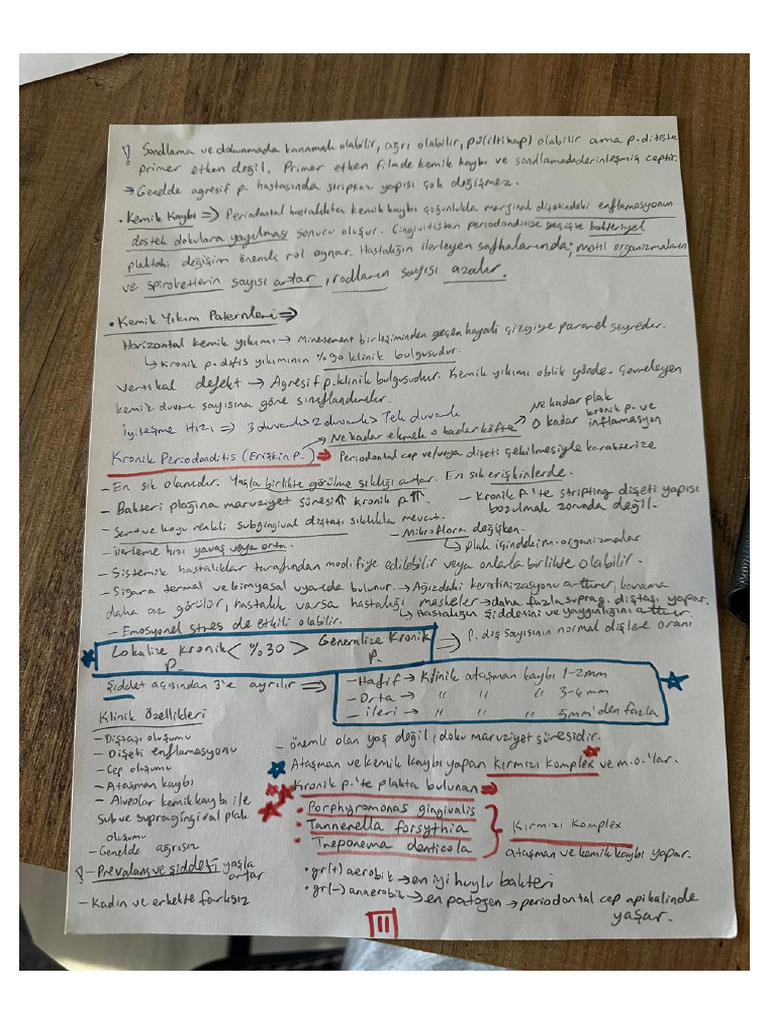 ! Sondlama ve dokunmada kanamalı olabilir, ağrı olabilir, pü(iltihap) olabilir ama p.ditiste
primer etken değil. Primer etken filmde kemik kaybı ve sondlamada derinleşmiş ceptir.
→ Genelde agresif p. hastasında stripting yapısı çok değişmez.
• Kemik Kaybı ⇒ Periodontal hastalıkta kemik kaybı çoğunlukla marginal dişetindeki enflamasyonun
destek dokulara yayılması sonucu oluşur. Gingivitisten periodonditise geçişte bakteriyel
plaktaki değişim önemli rol oynar. Hastalığın ilerleyen safhalarında; motil organizmaların
ve spiroketlerin sayısı artar, rodların sayısı azalır.
• Kemik Yıkım Paternleri ⇒
Horizontal kemik yıkımı → Minesement birleşiminden geçen hayali çizgiye paralel seyreder.
↳ Kronik p.ditis yıkımının %90 klinik bulgusudur.
Vertikal defekt → Agresif p. klinik bulgusudur. Kemik yıkımı oblik yönde. Çevreleyen
kemik duvarı sayısına göre sınıflandırılır.
İyileşme Hızı ⇒ 3 duvarlı > 2 duvarlı > Tek duvarlı
Ne kadar ekmek o kadar köfte → Ne kadar plak o kadar kronik p. ve inflamasyon
Kronik Periodonditis (Erişkin P.) ⇒ Periodontal cep ve/veya dişeti çekilmesiyle karakterize
- En sık olanıdır. Yaşla birlikte görülme sıklığı artar. En sık erişkinlerde.
- Bakteri plağına maruziyet süresi ⇑ kronik p. ⇑.
- Kronik P'te stripting dişeti yapısı
bozulmak zorunda değil.
- Sert ve koyu renkli subgingival diştaşı sıklıkla mevcut.
- Mikroflora değişken.
↳ Plak içindeki m.organizmalar
- İlerleme hızı yavaş veya orta.
- Sistemik hastalıklar tarafından modifiye edilebilir veya onlarla birlikte olabilir.
- Sigara termal ve kimyasal uyarıda bulunur. → Ağızdaki keratinizasyonu arttırır, kanama
daha az görülür, hastalık varsa hastalığı maskeler → daha fazla suprag. diştaşı yapar.
↳ Hastalığın şiddetini ve yaygınlığını arttırır.
- Emosyonel stres de etkili olabilir.
Lokalize Kronik P. < %30 > Generalize Kronik P. ⇒ P. diş sayısının normal dişlere oranı
Şiddet açısından 3'e ayrılır ⇒
- Hafif → Klinik ataşman kaybı 1-2mm
- Orta → " " " 3-4mm
- İleri → " " " 5mm'den fazla
Klinik Özellikleri
- Diştaşı oluşumu
- Dişeti enflamasyonu
- Cep oluşumu
- Ataşman kaybı
- Alveolar kemik kaybı ile
Sub ve supragingival plak
oluşumu
- Genelde ağrısız
! - Prevalans ve şiddeti yaşla
artar
- Kadın ve erkekte farksız
- Önemli olan yaş değil, doku maruziyet süresidir.
Ataşman ve kemik kaybı yapan Kırmızı Komplex ve m.o.'lar.
Kronik p.'te plakta bulunan ⇒
• Porphyromonas gingivalis
• Tannerella forsythia
• Treponema denticola
Kırmızı Komplex
ataşman ve kemik kaybı yapar.
• gr(+) aerobik → en iyi huylu bakteri
• gr(-) anaerobik → en patojen → periodontal cep apikalinde
yaşar.
11